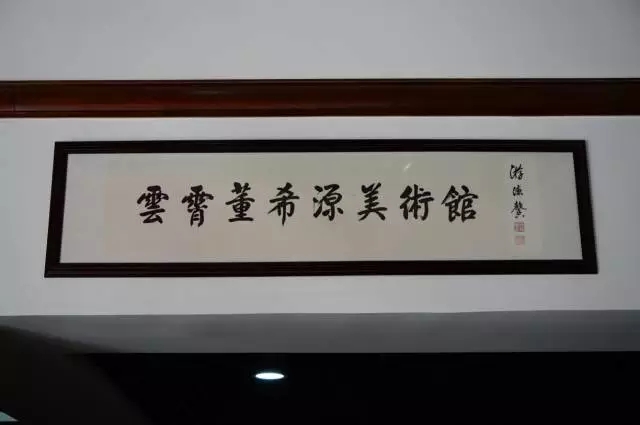 雲霄董希源美術館
游德馨